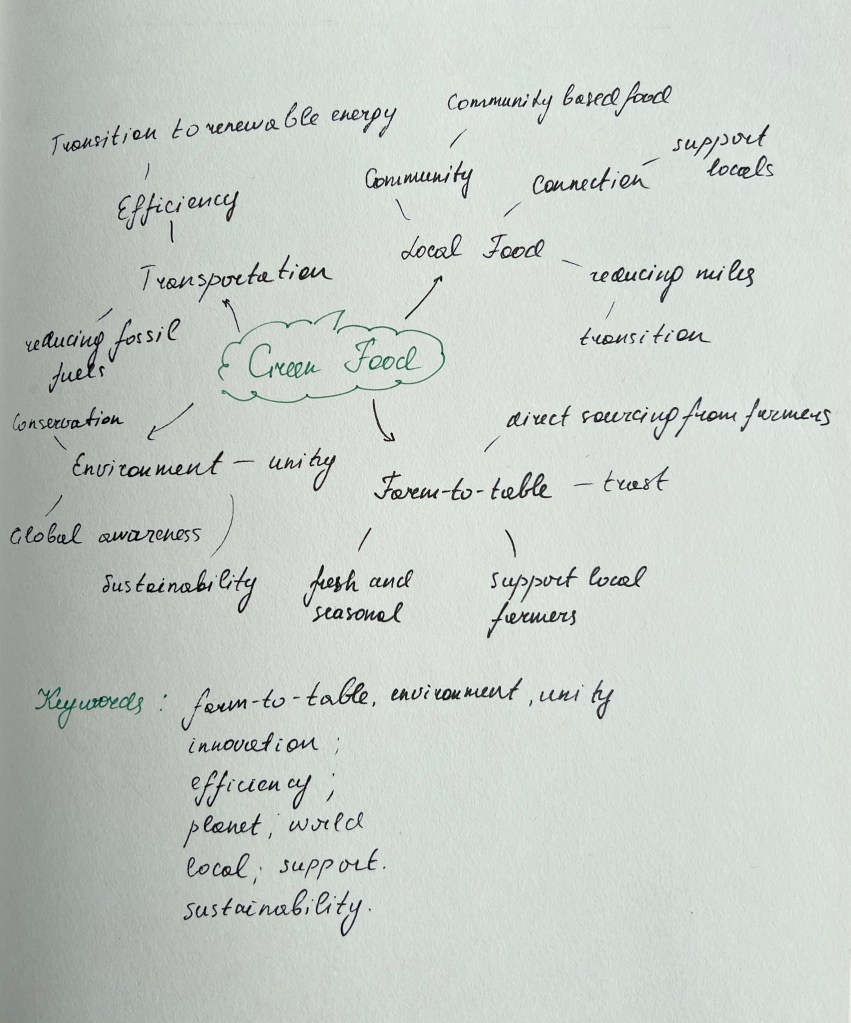 Community based food
Transition to renewable energy
support
locals
Community
Connection
Efficiency
Local Food
Transportation
reducing miles
reducing fossil
fuels
transition
Green Food
Conservation
direct sourcing from farmers
Environment – unity
Farm-to-table – trust
Global awareness
Sustainability
fresh and
seasonal
support local
farmers
Keywords: farm-to-table, environment, unity
innovation;
efficiency;
planet; world
local; support.
sustainability.